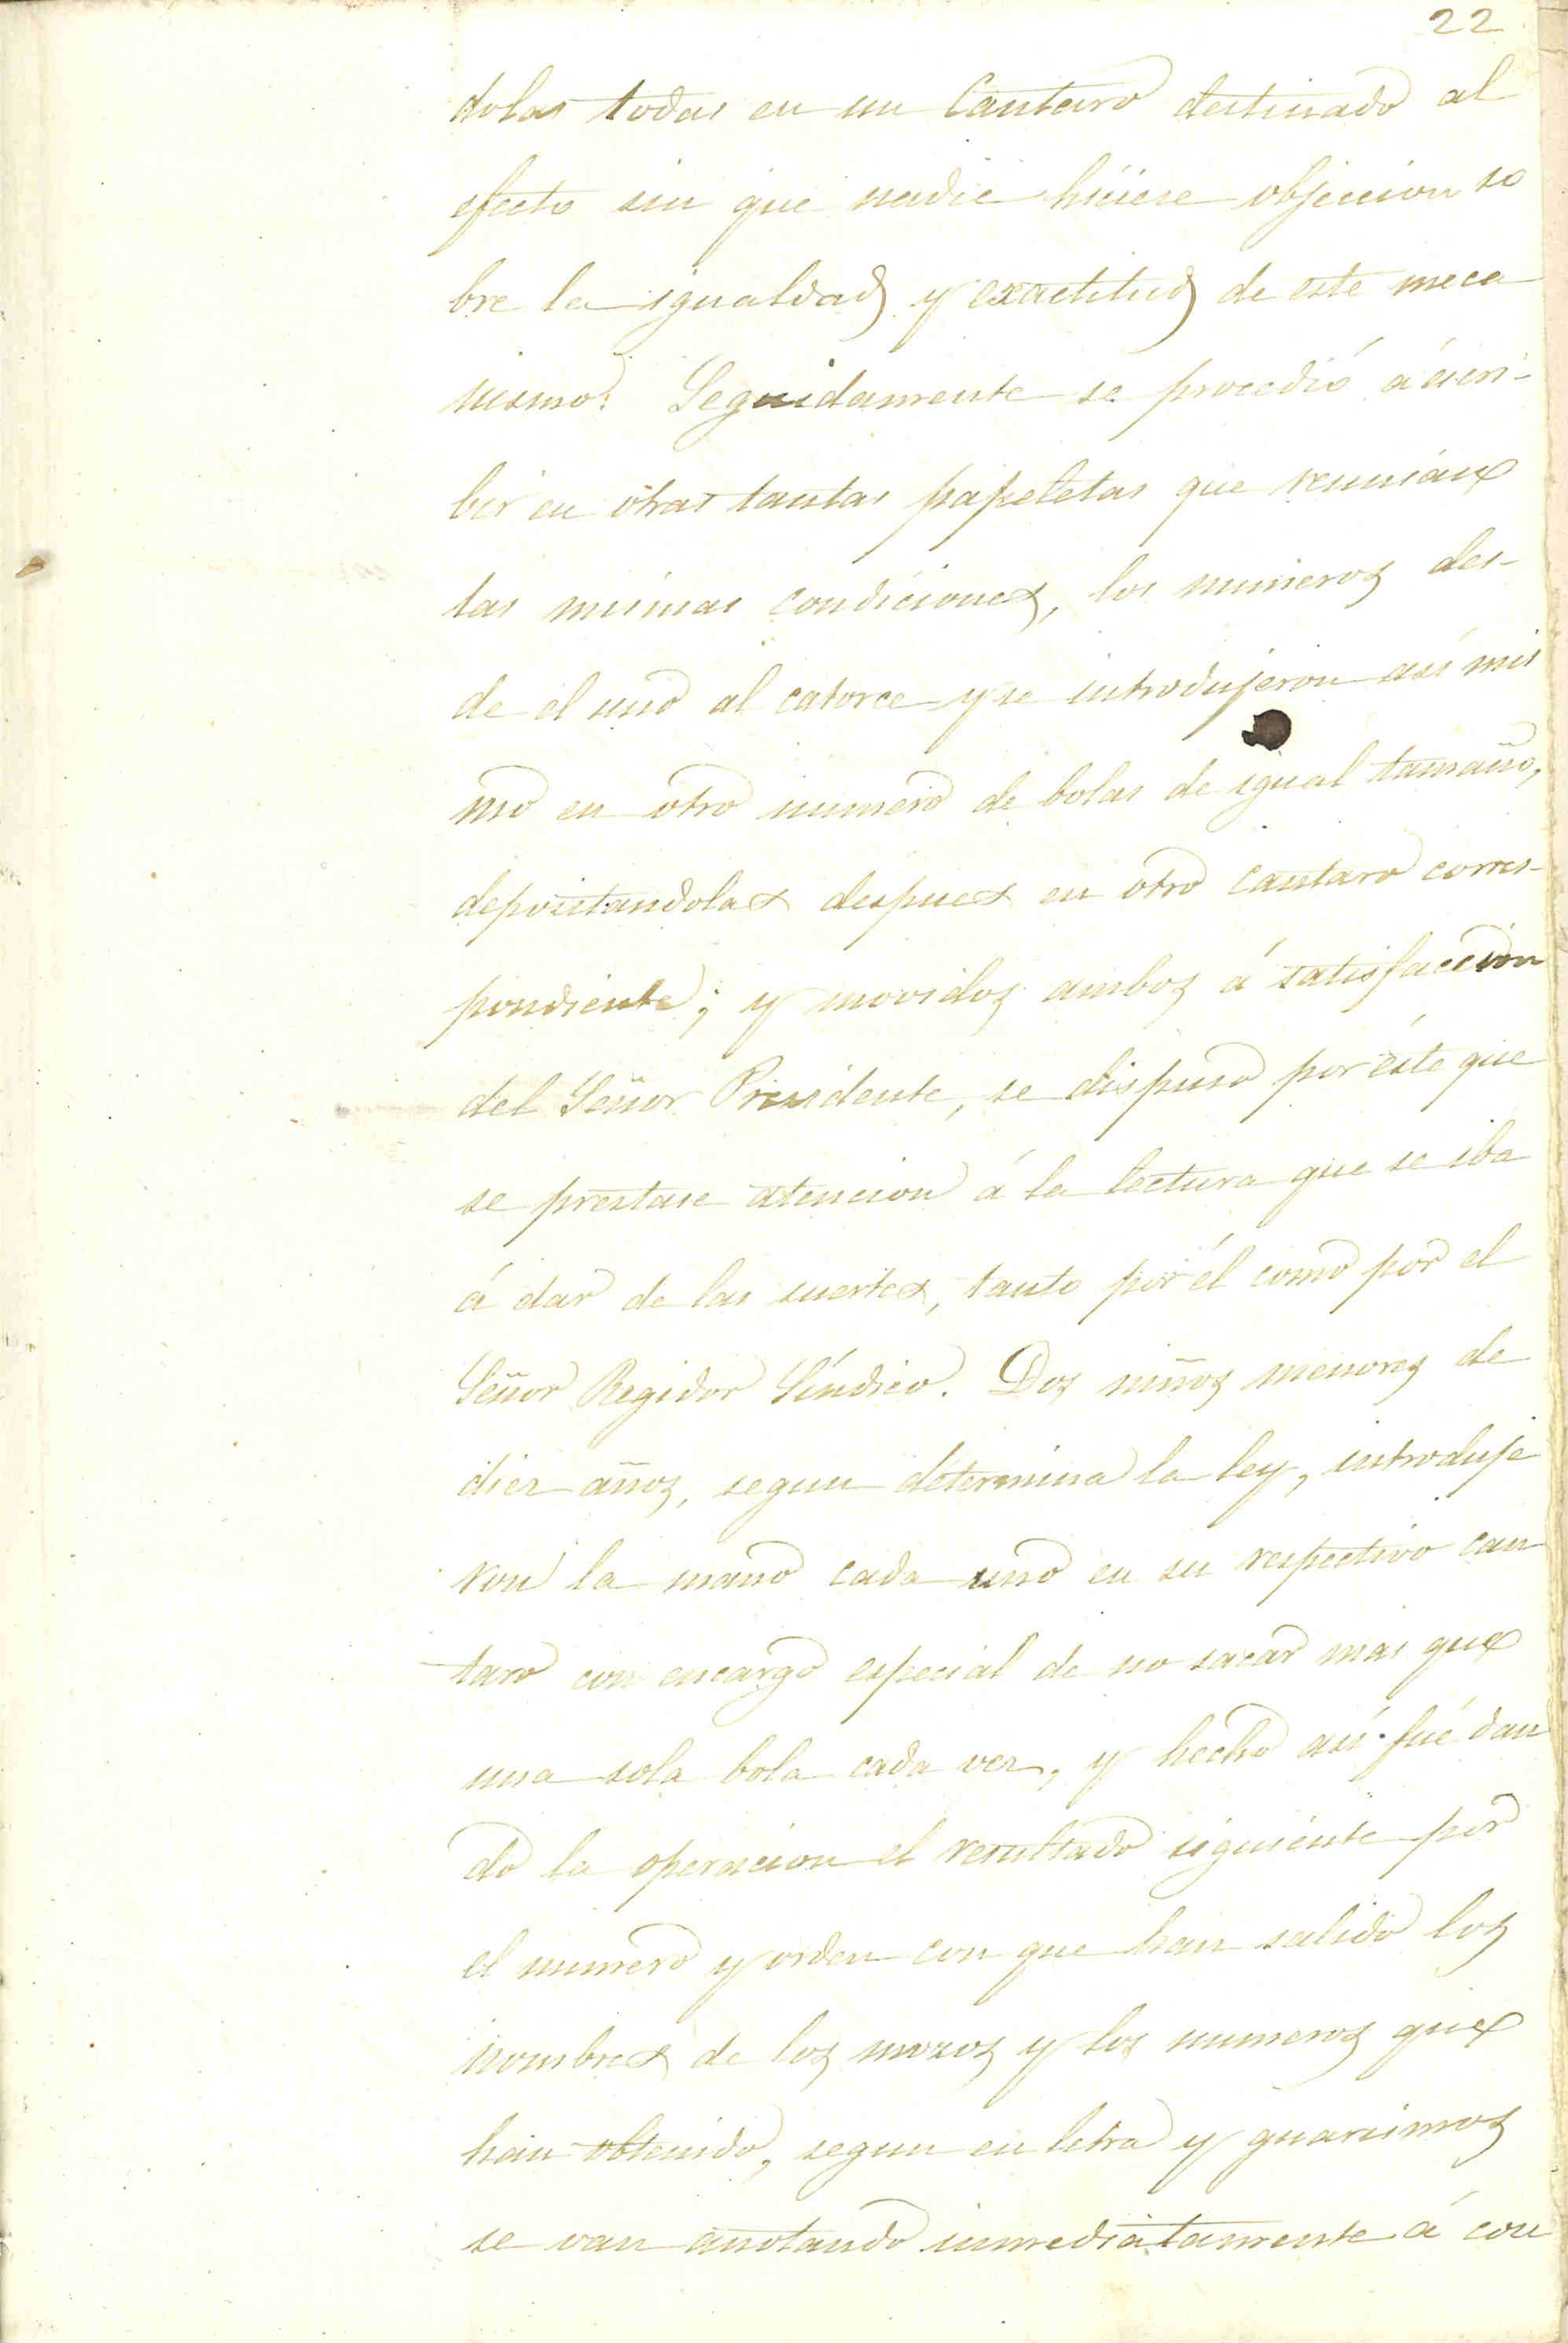 22
dolas todas en un Cantaro destinado al
efecto sin que nadie hiciese objeccion so
bre la igualdad y exactitud de este meca
nismo. Seguidamente se procedió á escri-
bir en otras tantas papeletas que reunian
las mismas condiciones, los numeros des-
de el uno al catorce y se introdujeron así mis
mo en otro numero de bolas de igual tamaño,
depositandolas despues en otro cantaro corres-
pondiente; y movidos ambos á satisfaccion
del Señor Presidente, se dispuso por éste que
se prestase atencion á la lectura que se iba
á dar de las suertes, tanto por él como por el
Señor Regidor Síndico. Dos niños menores de
diez años, segun determina la ley, introduje
ron la mano cada uno en su respectivo can
taro con encargo especial de no sacar mas que
una sola bola cada vez, y hecho así fué dan
do la operacion el resultado siguiente por
el numero y orden con que han salido los
nombres de los mozos y los numeros que
han obtenido, segun en letra y guarismos
se van anotando inmediatamente á con